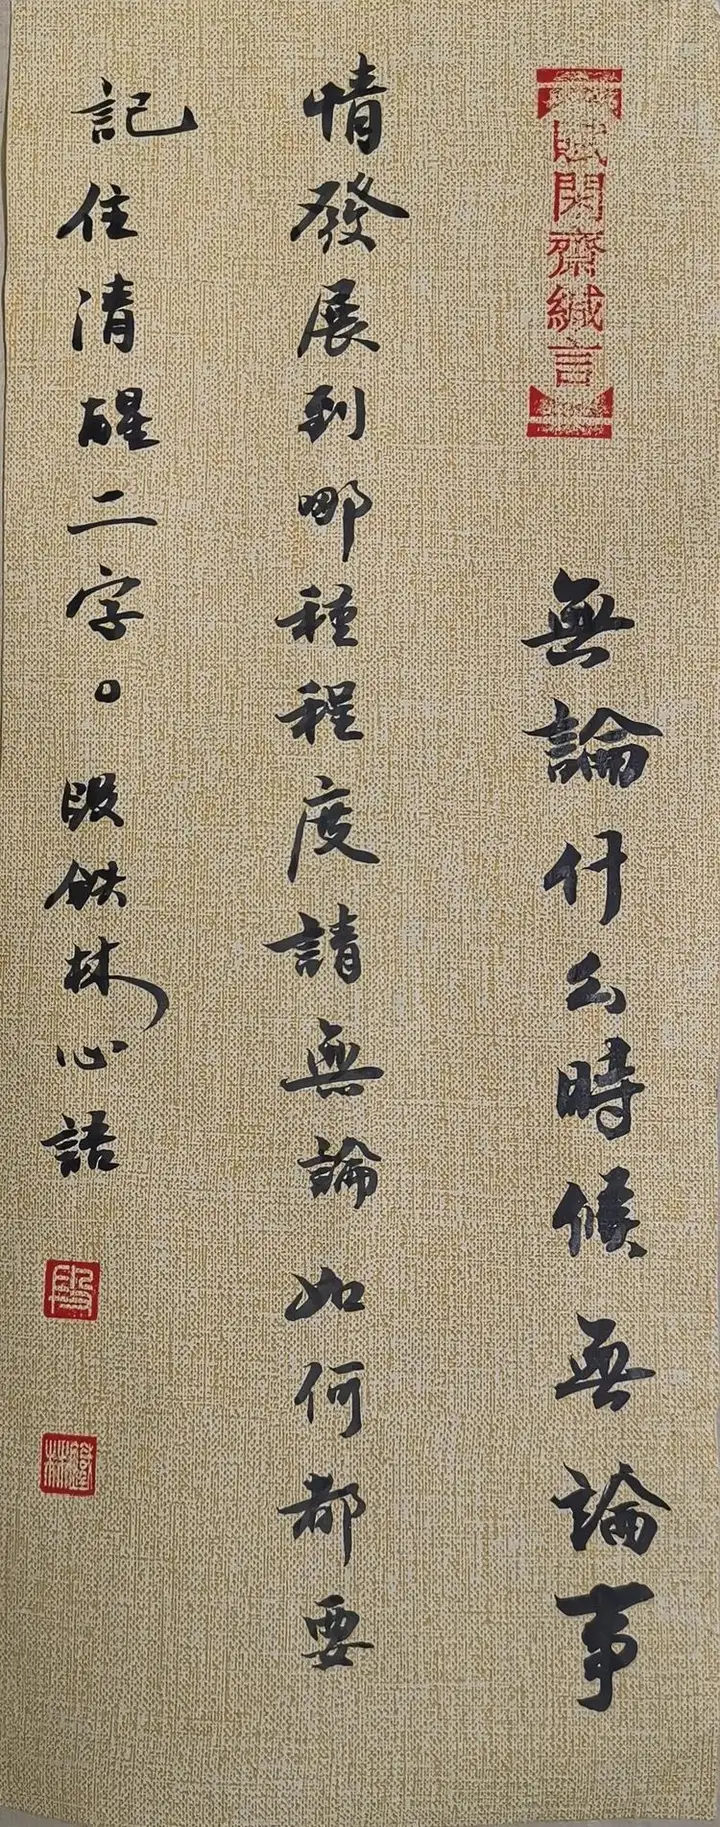 賦閑齋緘言
無論什么時候無論事
情發展到哪種程度請無論如何都要
記住清醒二字。段鉄林心語
段